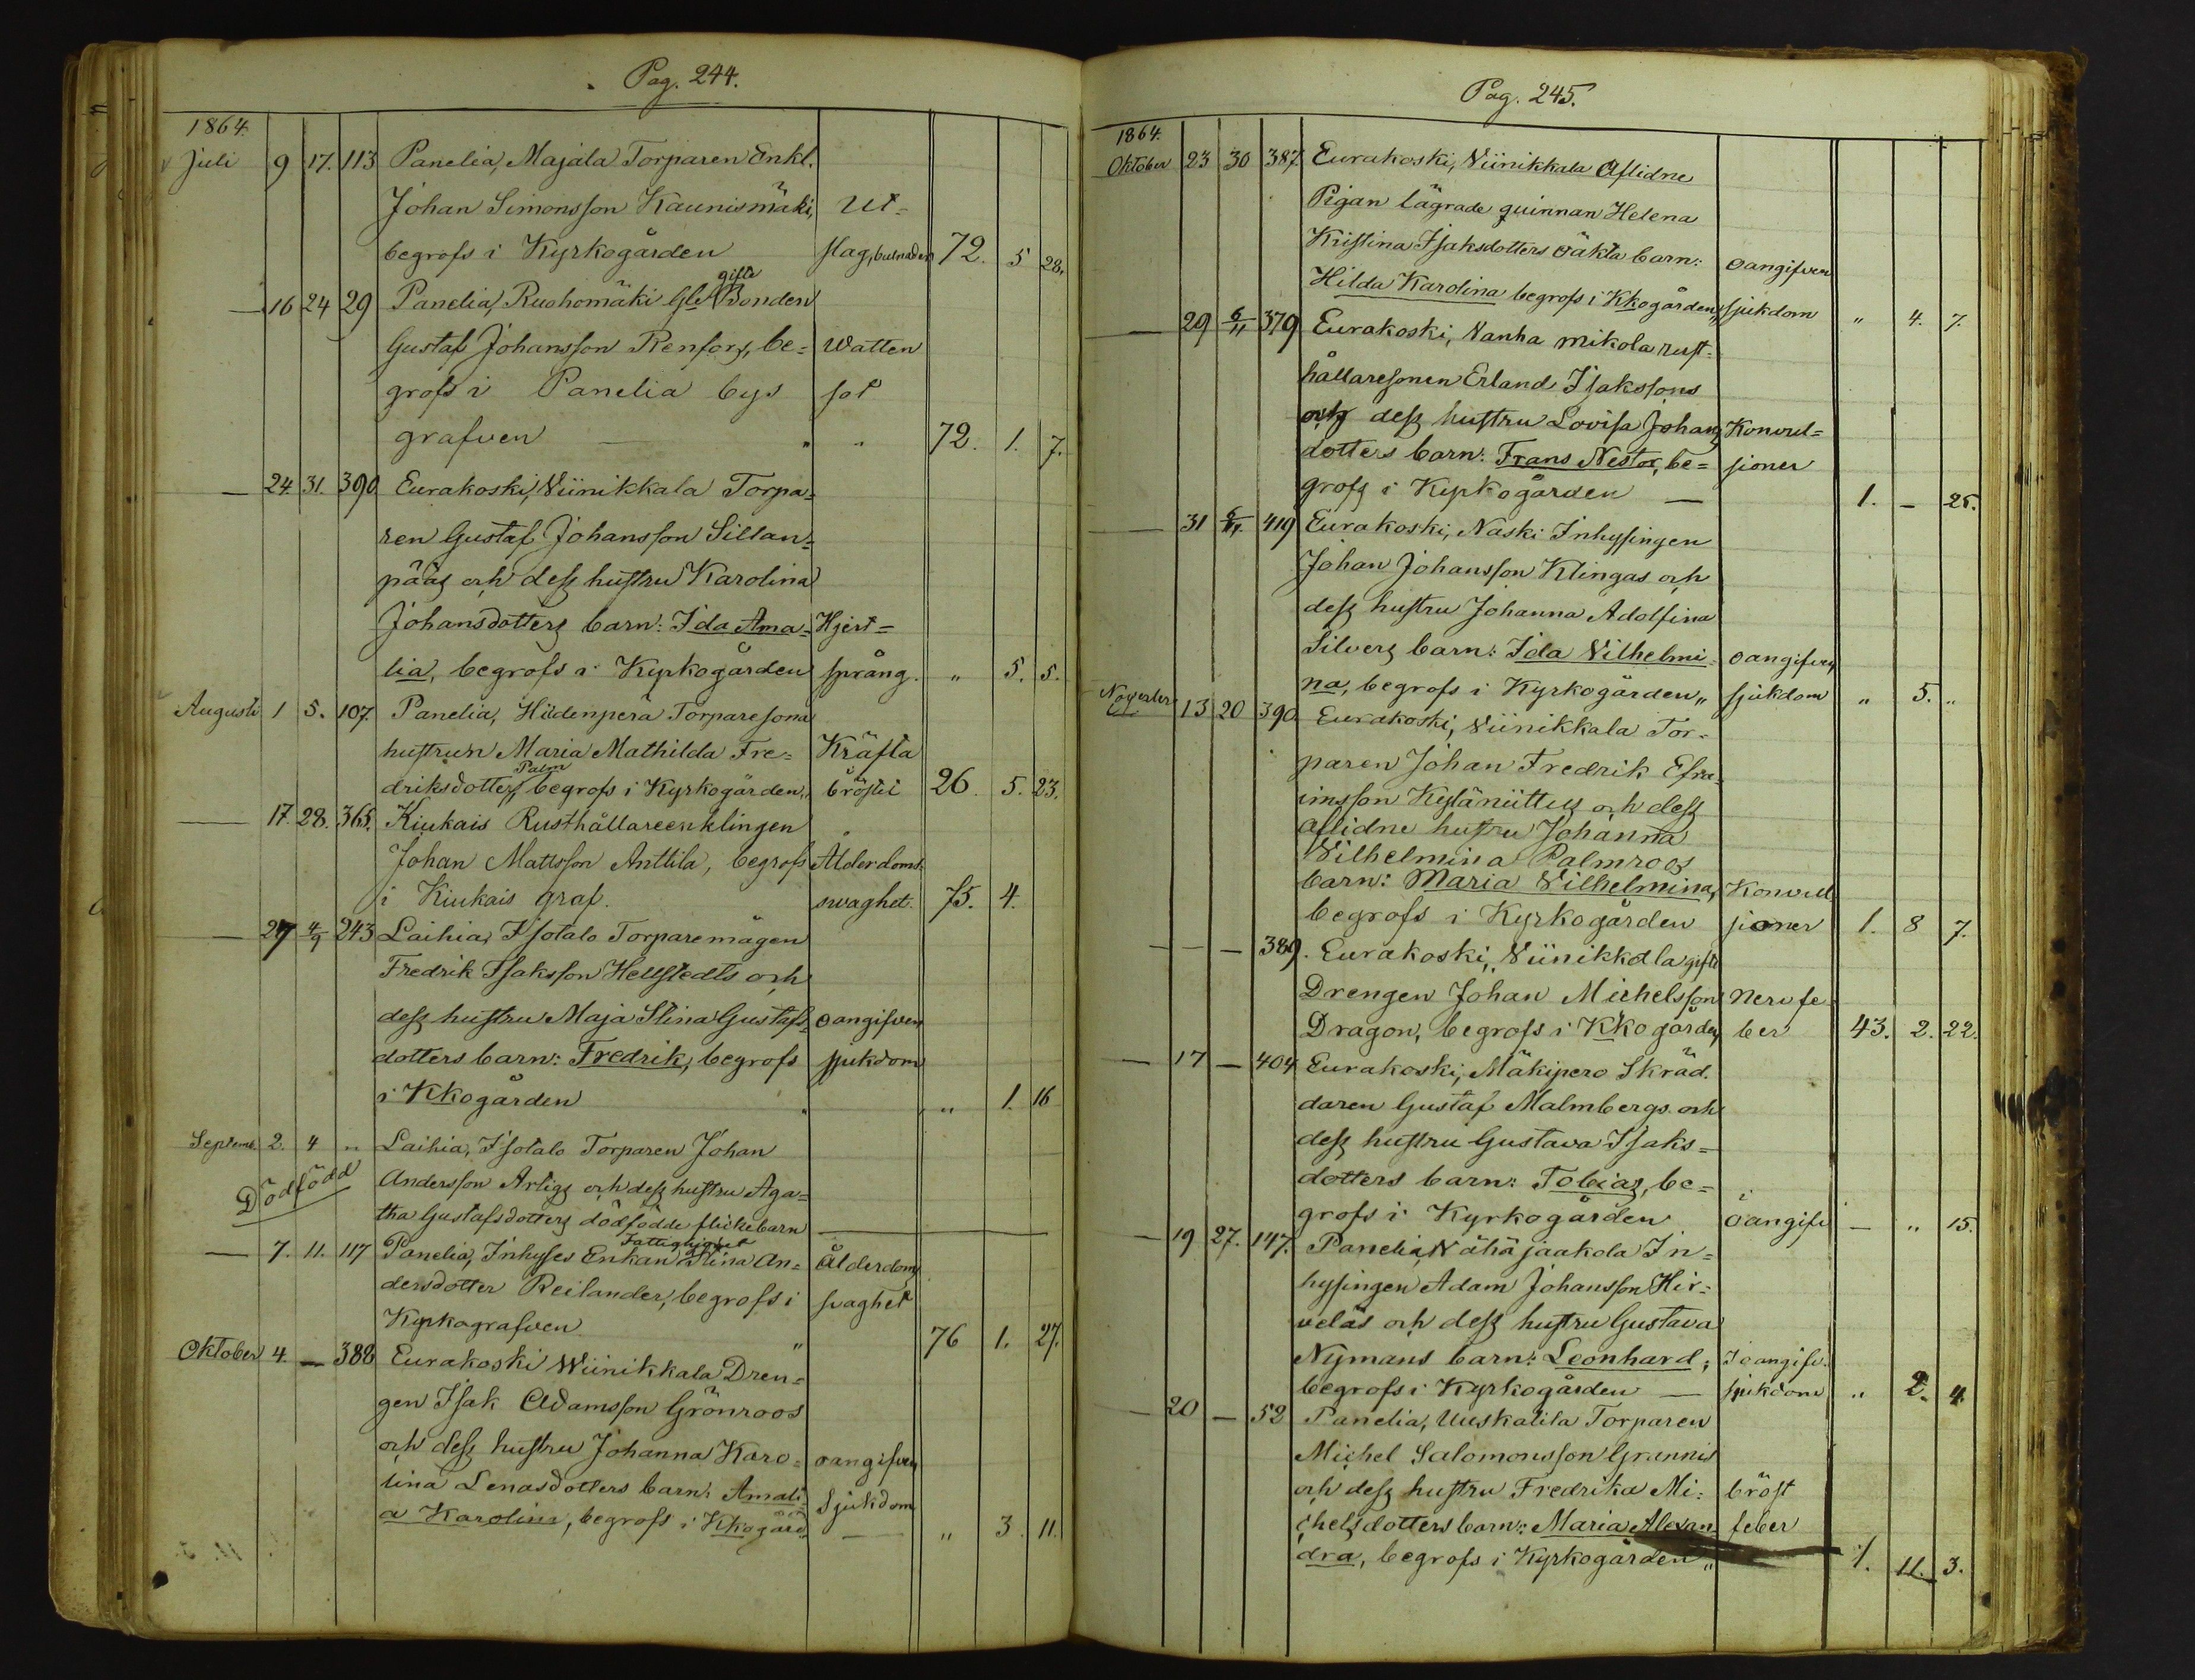 Pag. 244.
1864.
Juli 9 17. 113 Panelia, Majala Torparen Enkl.
Johan Simonsson Kaunismäki, Ut=
begrofs i Kyrkogården slag, bulnaden 72. 5 28.
gifte
— 16 24 29 Panelia, Ruohomäki Gle Bonden
Gustaf Johansson Renfors, be= Watten
grofs i Panelia bys sot
grafven — " " 72. 1. 7.
— 24. 31. 390 Eurakoski, Viinikkala Torpa=
ren Gustaf Johansson Sillan=
pääs och dess hustru Karolina
Johansdotters barn: Ida Ama= Hjert=
lia, begrofs i Kyrkogården språng. " 5. 5.
Augusti 1 5. 107. Panelia, Hildenperä Torparesona
hustrun Maria Mathilda Fre= Kräfta
Palm
driksdotter, begrofs i Kyrkogården, bröstet 26. 5. 23.
— 17. 28. 365. Kiukais Rusthållareenklingen
Johan Mattsson Anttila, begrofs Ålderdoms
i Kiukais graf. swaghet. 75. 4.
— 27 4/9 243 Laihia, Isotalo Torparemågen
Fredrik Isaksson Hellstedts och
dess hustru Maja Stina Gustafs= oangifven
dotters barn: Fredrik, begrofs sjukdom
i Kkogården " 1. 16
Septemb. 2. 4 " Laihia, Isotalo Torparen Johan
Dödfödd Andersson Artigs och dess hustru Aga=
tha Gustafsdotters dödfödde flickebarn —
Fattighjonet
— 7. 11. 117 Panelia, Inhyses Enkan Stina An= Ålderdoms
dersdotter Reilander, begrofs i svaghet
Kyrkografven " 76 1. 27.
Oktober 4. — 388 Eurakoski Wiinikkala Dren=
gen Isak Adamsson Grönroos
och dess hustru Johanna Karo= oangifven
lina Lenasdotters barn: Amali= Sjukdom
a Karolina, begrofs i Kkogård. — " 3. 11.
Pag. 245.
1864.
Oktober 23 30 387. Eurakoski, Viinikkala Aflidne
Pigan lägrade quinnan Helena
Kristina Isaksdotters oäkta barn: oangifven
Hilda Karolina begrofs i Kkogården, sjukdom " 4. 7.
— 29 6/11 379 Eurakoski, Vanha mikola rust=
hållaresonen Erland Isakssons
och dess hustru Lovisa Johans Konvul=
dotters barn: Frans Nestor, be= sioner
grofs i Kyrkogården — 1. - 25.
— 31 6/11. 419 Eurakoski, Naski Inhysingen
Johan Johansson Klingas och
dess hustru Johanna Adolfina
Silvers barn: Ida Vilhelmi= oangifven
na, begrofs i Kyrkogården " sjukdom " 5. "
November 13 20 390 Eurakoski, Viinikkala Tor=
paren Johan Fredrik Efra=
imsson Kylänüttus och dess
aflidne hustru Johanna
Wilhelmina Palmroos
barn: Maria Vilhelmina, Konvul
begrofs i Kyrkogården sioner 1. 8 7.
— — — 389. Eurakoski, Viinikkala gifte
Drengen Johan Michelsson Nervfe
Dragon, begrofs i Kkogården ber 43. 2. 22.
— 17 — 404 Eurakoski, Mäkipero Skräd=
daren Gustaf Malmbergs och
dess hustru Gustava Isaks=
dotters barn: Tobias, be=
grofs i Kyrkogården oangifv — " 15.
— 19 27. 147. Panelia, Nähä jaakola In=
hysingen Adam Johansson Hir=
velas och dess hustru Gustava
Nymans barn: Leonhard, oangifv.
begrofs i Kyrkogården — sjukdom " 2. 4.
— 20 — 52 Panelia, Uuskalila Torparen
Michel Salomonsson Grannis
och dess hustru Fredrika Mi= bröst
chelsdotters barn: Maria Alexan= feber
dra, begrofs i Kyrkogården " 1. 11. 3.